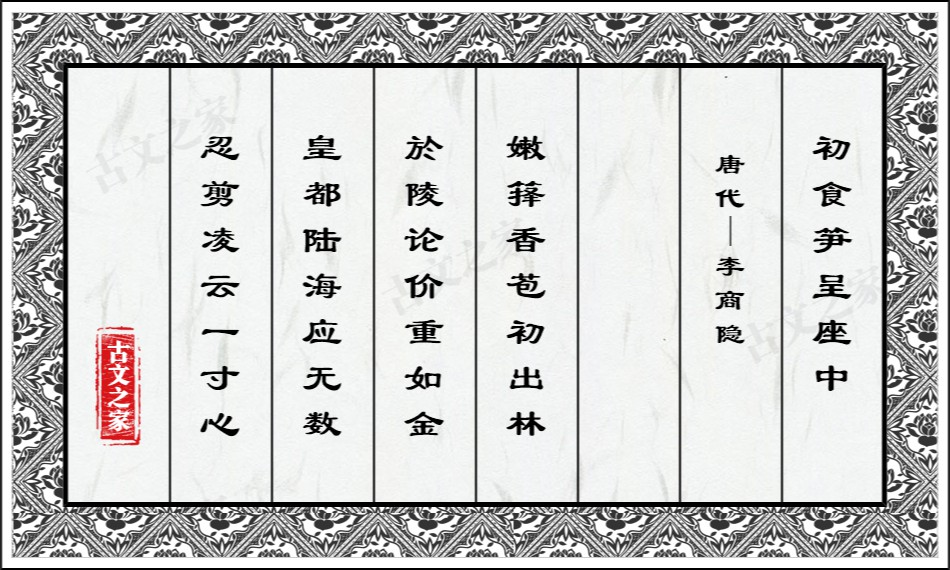 初食笋呈座中
唐代—李商隐
嫩箨香苞初出林
於陵论价重如金
皇都陆海应无数
忍剪凌云一寸心
古文之家
古文之家
古文之家
古文之家